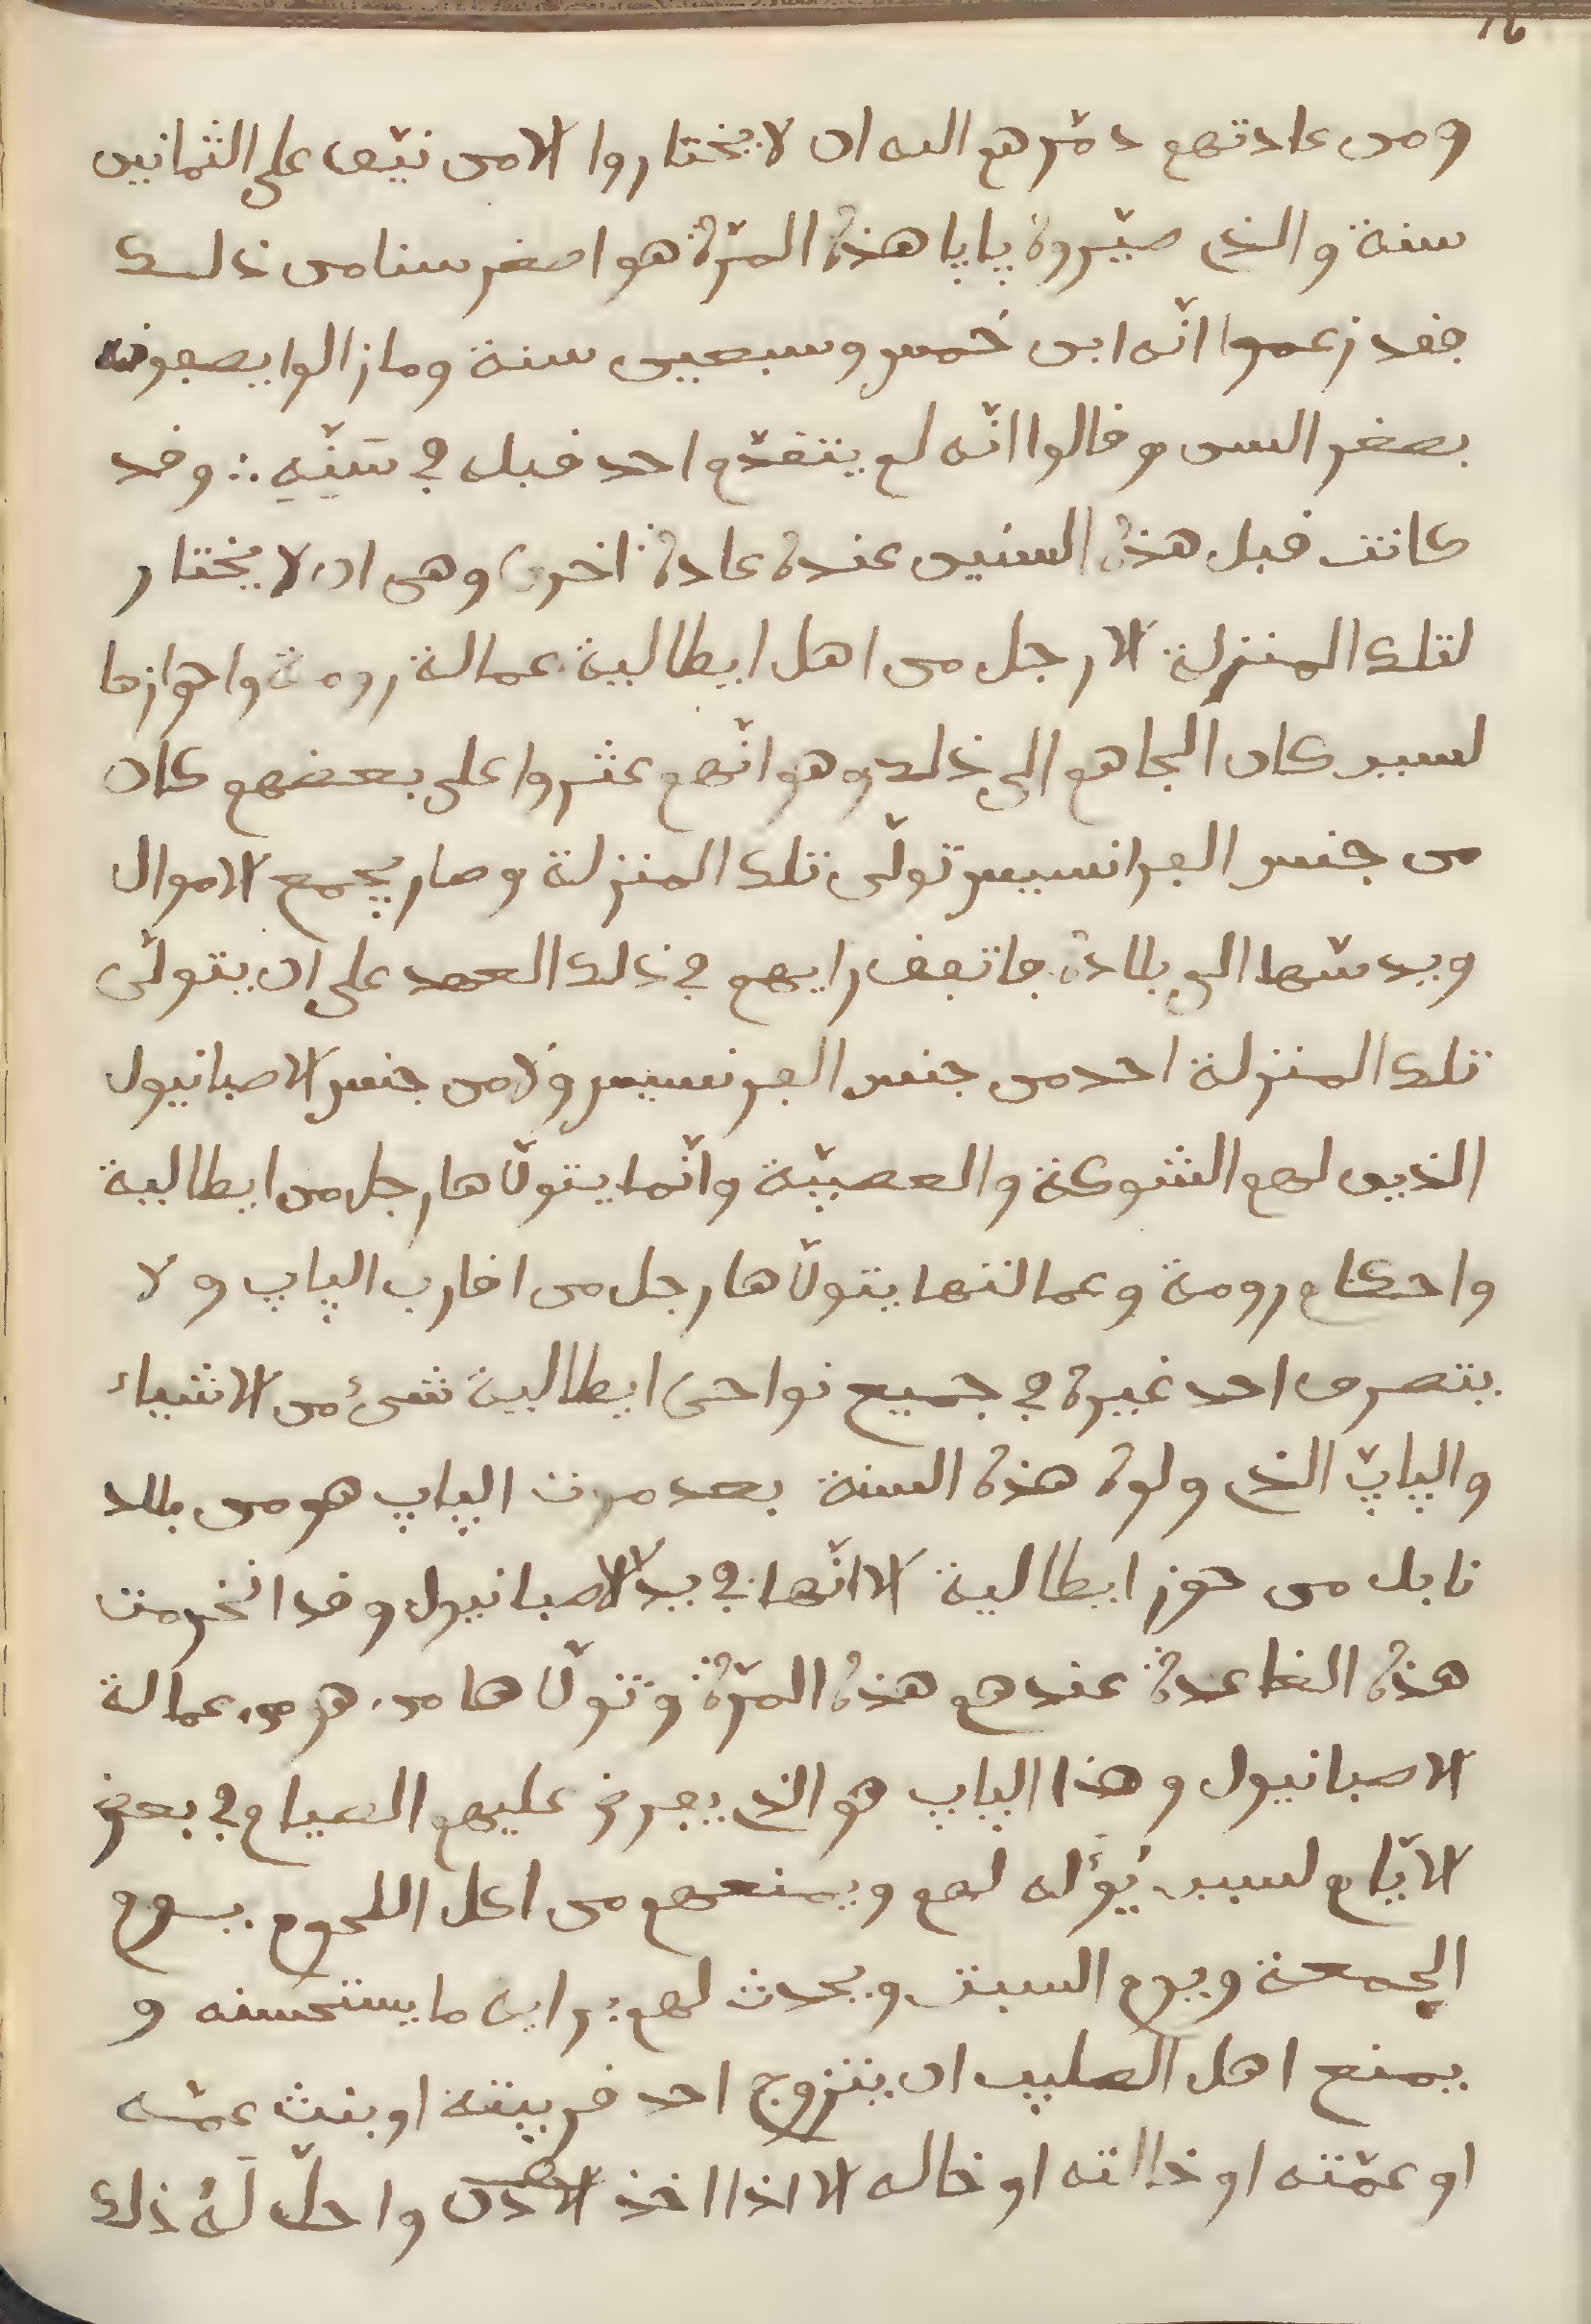 76
ومن عادتهم دمّرهم الله ان لا يختاروا الا من نيّف على الثمانين
سنة والذي صيّروه پاپا هذه المرّة هو اصغر سنا من ذلك
فقد زعموا انّه ابن خمس وسبعين سنة وما زالوا يصفونه
بصغر السن وقالوا انّه لم يتقدّم احد قبله في سَنِّهِ ∴ وقد
كانت قبل هذه السنين عنده عادة اخرى وهى ان لا يختار
لتلك المنزلة الا رجل من اهل ايطالية عمالة رومة واحوازها
لسبب كان الجاهم الى ذلك وهو انّهم عثروا على بعضهم كان
من جنس الفرانسيس تولّى تلك المنزلة وصار يجمع الاموال
ويدسّها الى بلاده فاتفق رايهم في ذلك العهد على ان يتولّى
تلك المنزلة احد من جنس الفرنسيس ولا من جنس الاصبانيول
الذين لهم الشوكة والعصبيّة وانّما يتولّاها رجل من ايطالية
واحكام رومة وعمالتها يتولّاها رجل من اقارب الپاپ ولا
يتصرف احد غيره في جميع نواحى ايطالية شىء من الاشياء
والپاپّ الذي ولوه هذه السنة بعد موت الپاپ هو من بلاد
نابل من حوز ايطالية الا انّها في يد الاصبانيول وقد انخرمت
هذه القاعدة عندهم هذه المرّة وتولّاها من هو من عمالة
الاصبانيول وهذا الپاپ هو الذي يفرض عليهم الصيام في بعض
الايّام لسبب يُؤَله لهم ويمنعهم من اكل اللحوم يوم
الجمعة ويوم السبت ويحدث لهم برايه ما يستحسنه و
يمنع اهل الصليب ان يتزوج احد قريبته او بنت عمّه
او عمّته او خالته او خاله الا اذا اخذ الاذن واحلّ لَهُ ذلك